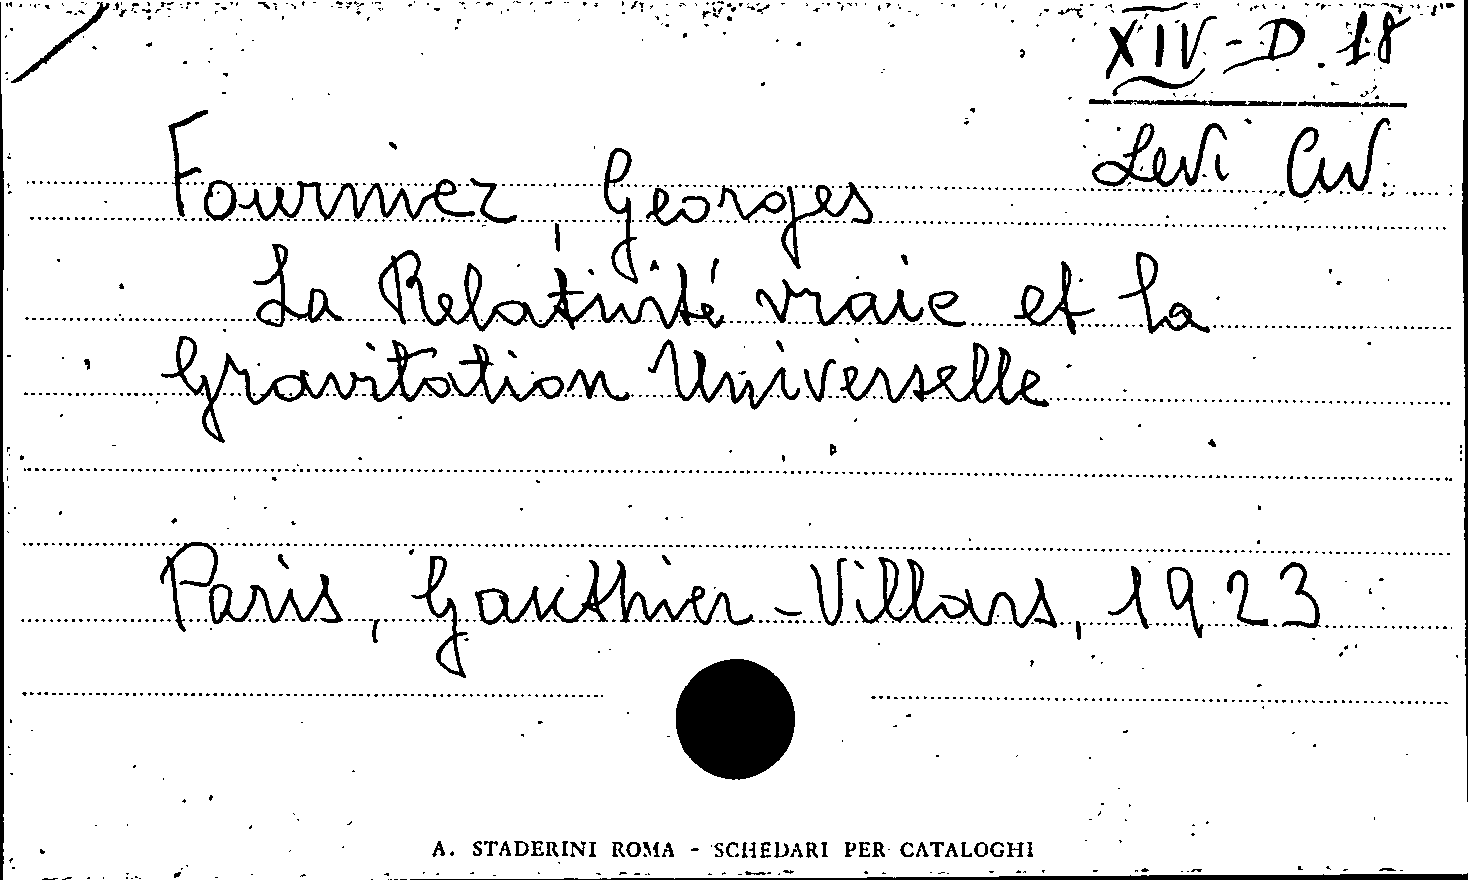 XIV-D.18
Levi Civ
Fournier, Georges
La Relativité vraie et la
Gravitation Universelle
Paris, Gauthier-Villars, 1923
A. STADERINI ROMA - SCHEDARI PER CATALOGHI